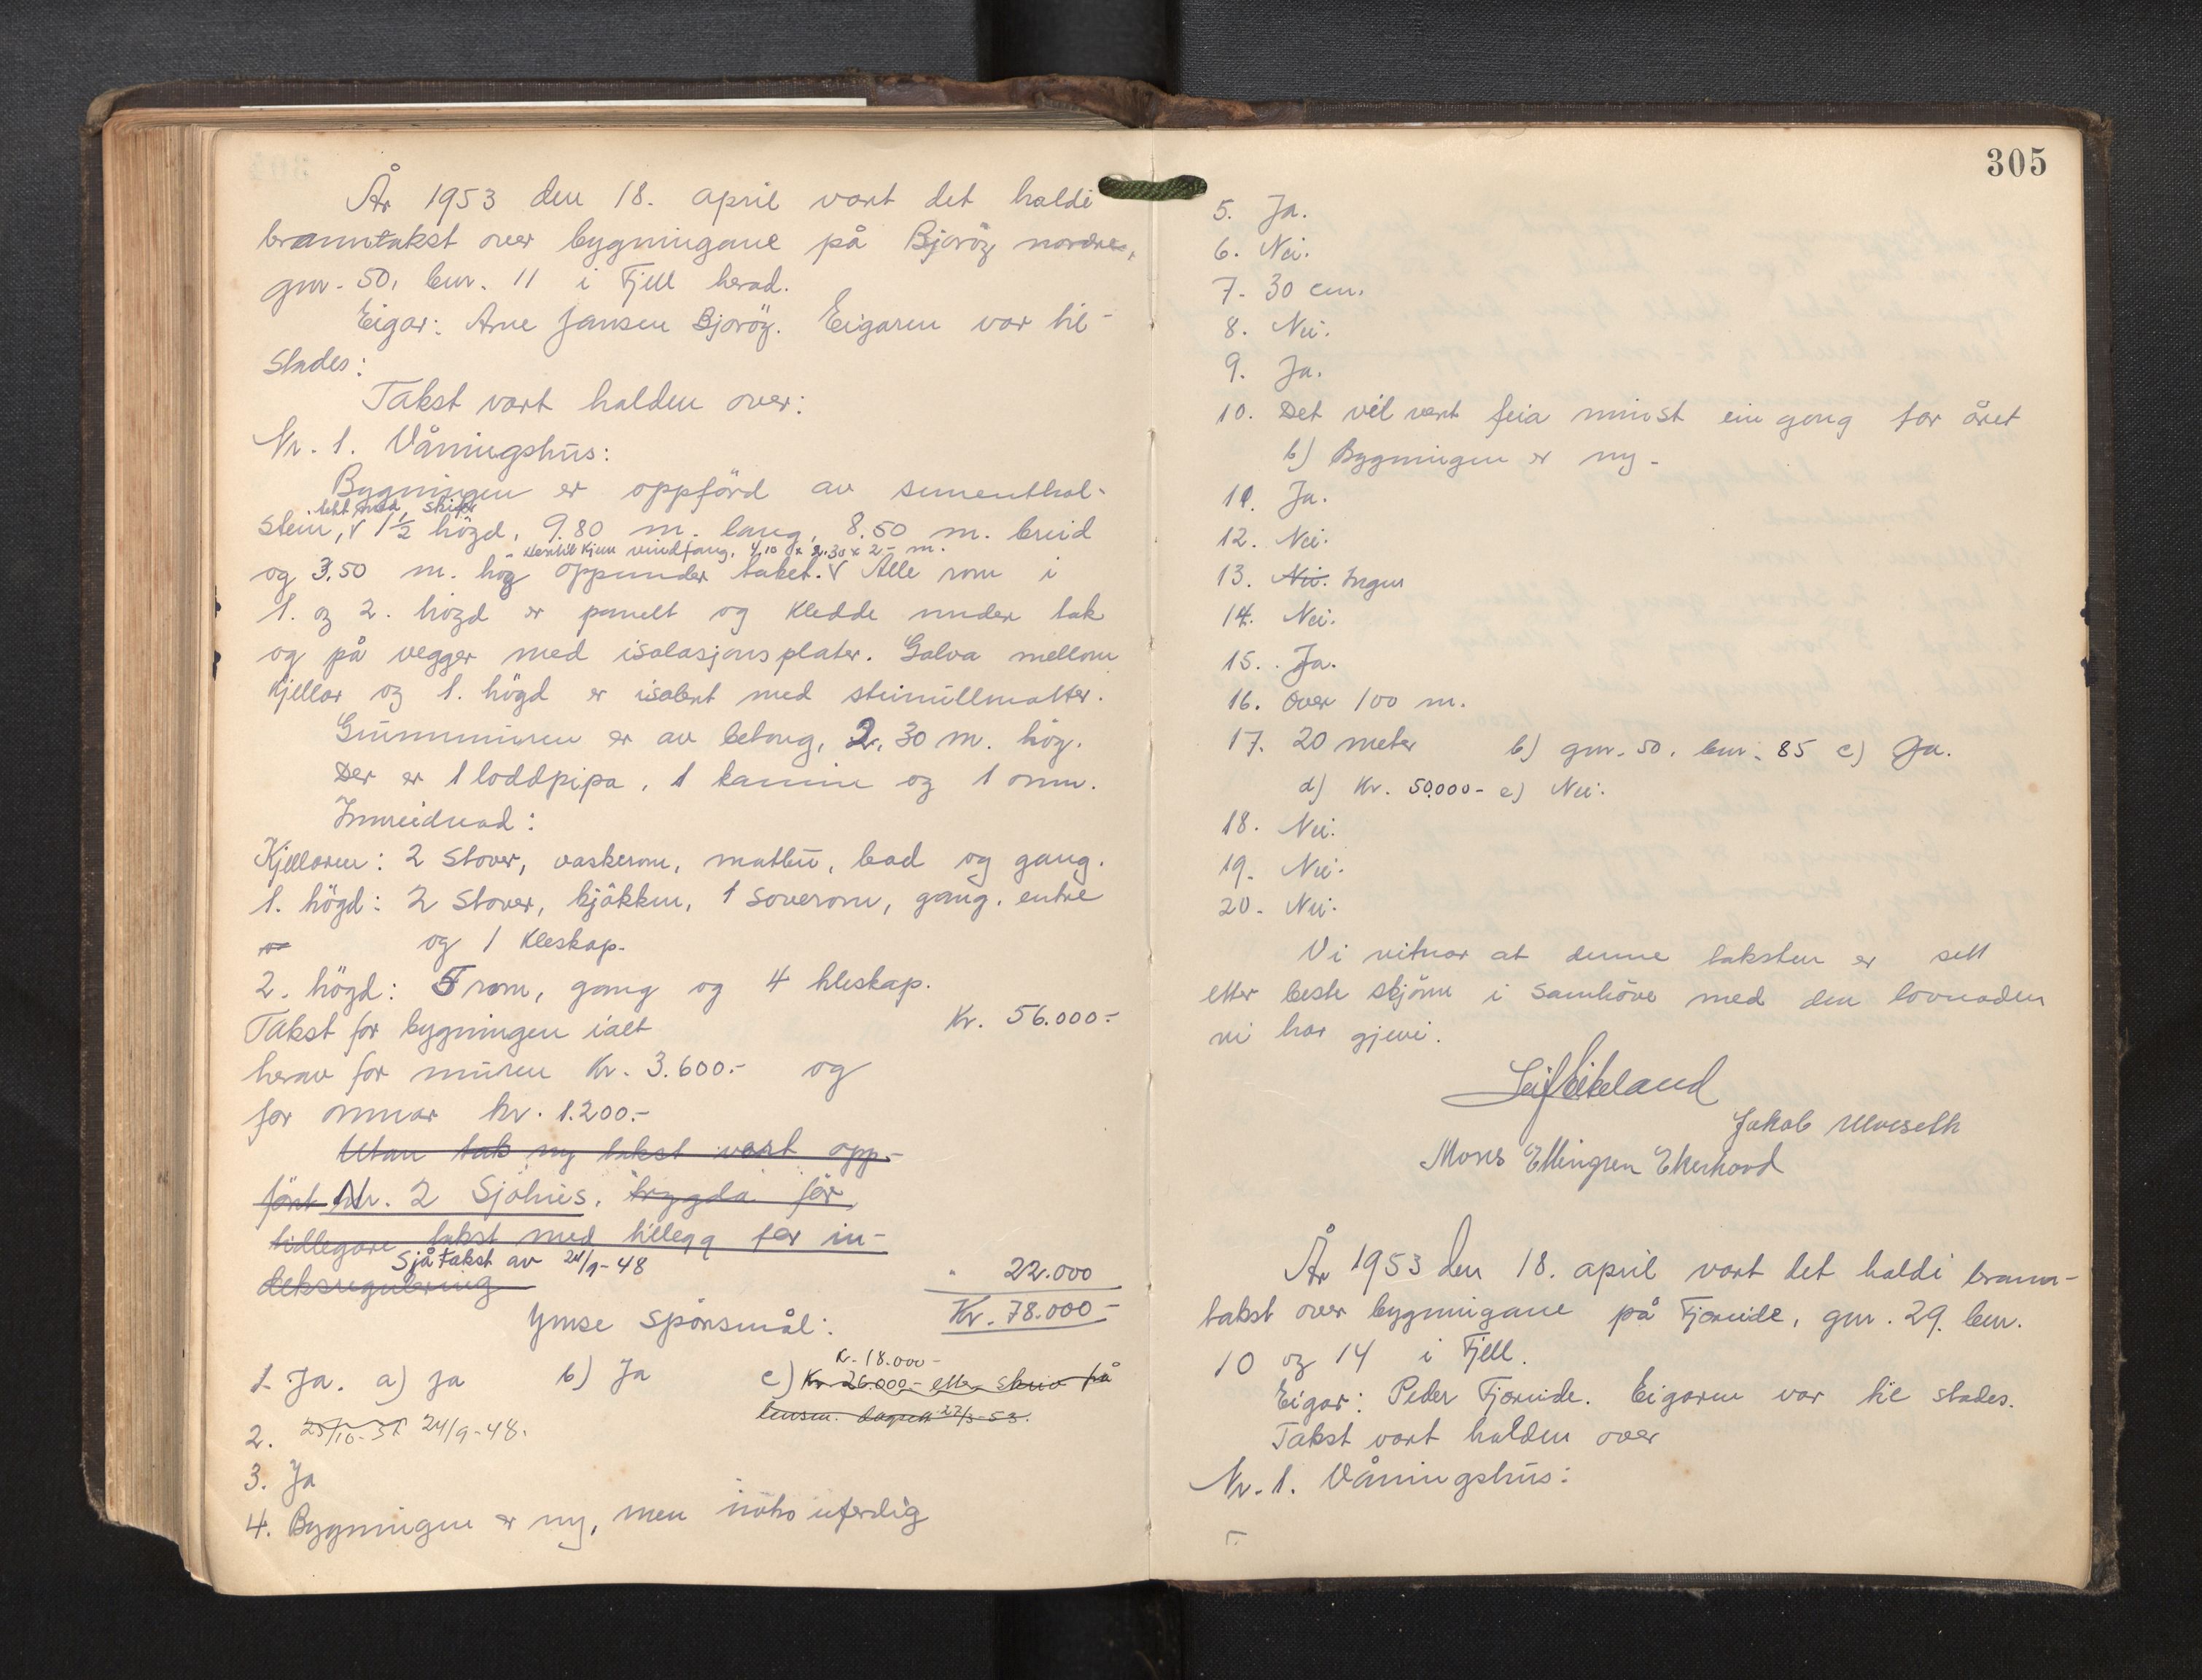 År 1953 den 18. april vart det haldi
branntakst over bygningane på Bjoröy nordre,
gnr. 50, bnr. 11 i Fjell herad.
Eigar: Arne Jansen Bjoröy. Eigaren var til-
stades:
Takst vart halden over:
Nr. 1. Våningshus:
Bygningen er oppförd av sementhol-
tekt med skifer
stein, V 1½ högd, 9.80 m. lang, 8.50 m. breid
vindfang, 4.10 x 2.30 x 2 - m.
og 3.50 m. høg oppunder taket. V Alle rom i
1. og 2. högd er panelt og kledde under tak
og på vegger med isolasjonsplater. Golva mellom
kjellar og 1. högd er isolert med steinullmatter.
Grunnmuren er av betong, 2.30 m. hög.
Der er 1 loddpipa, 1 kamin og 1 omn.
Innreidnad:
Kjellaren: 2 stover, vaskerom, matbu, bad og gang.
1. högd: 2 stover, kjökken, 1 soverom, gang, entre
og 1 kleskap.
2. högd: 5 rom, gang og 4 kleskap.
Takst for bygningen ialt Kr. 56.000.-
herav for muren kr. 3.600.- og
for omnar kr. 1.200.-
Utan tak ny takst vart opp-
fört Nr. 2 Sjöhus. bygda för
tidlegare takst med tillegg for in-
Sjå takst av 24/9-48
deksregulering " 22.000
Ymse spörsmål: Kr. 78.000-
Kr. 18.000-
1. Ja. a) ja b) Ja c) Kr. 26.000,- etter skriv frå
lensm. dagsett 27/3-53.
2. 25/10-51 24/9-48.
3. Ja
4. Bygningen er ny, men noko uferdig
305
5. Ja.
6. Nei.
7. 30 cm.
8. Nei.
9. Ja.
10. Det vil vert feia minst ein gong for året
b) Bygningen er ny.
11. Ja.
12. Nei.
13. Nei. Ingen
14. Nei.
15. Ja.
16. Over 100 m.
17. 20 meter b) gnr. 50, bnr. 85 c) Ja.
d) Kr. 50.000- e) Nei.
18. Nei.
19. Nei.
20. Nei.
Vi vitnar at denne taksten er sett
etter beste skjönn i samhöve med den lovnaden
vi har gjevi.
Leif Eikeland
Jakob Ulveseth
Mons Ellingsen Ekerhovd
År 1953 den 18. april vart det haldi brann-
takst over bygningane på Fjæreide, gnr. 29. bnr.
10 og 14 i Fjell.
Eigar: Peder Fjæreide. Eigaren var til stades.
Takst vart halden over
Nr. 1. Våningshus: